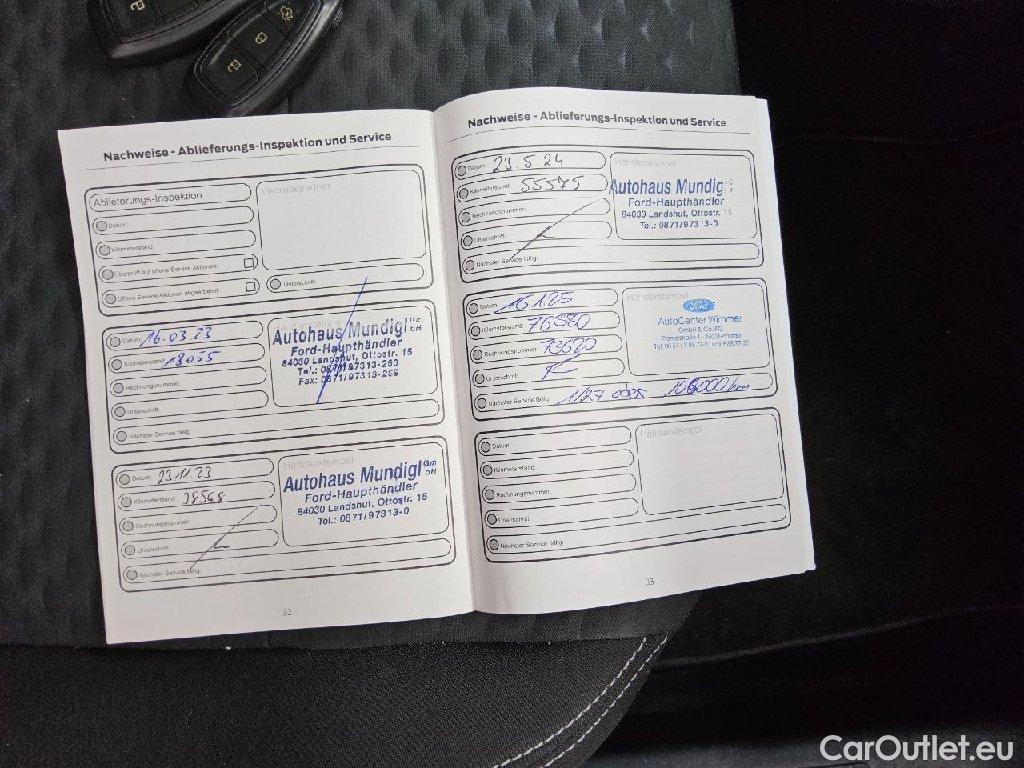 Nachweise - Ablieferungs-Inspektion und Service
Ablieferungs-Inspektion
Vertragspartner
Datum:
Kilometerstand:
Unterschrift:
Datum: 16.03.23
Kilometerstand: 18055
Rechnungsnummer:
Unterschrift:
Nächster Service fällig:
Autohaus Mundigl
Ford-Haupthändler
84030 Landshut, Ottostr. 15
Tel.: 0871/97313-260
Fax: 0871/97313-259
Datum: 23.11.23
Kilometerstand: 38568
Rechnungsnummer:
Unterschrift:
Nächster Service fällig:
Händlerstempel
Autohaus Mundigl Gm
bH
Ford-Haupthändler
84030 Landshut, Ottostr. 15
Tel.: 0871/97313-0
32
Nachweise - Ablieferungs-Inspektion und Service
Datum: 29.5.24
Kilometerstand: 55575
Rechnungsnummer:
Unterschrift:
Nächster Service fällig:
Händlerstempel
Autohaus Mundigl
Ford-Haupthändler
84030 Landshut, Ottostr. 15
Tel.: 0871/97313-0
Datum: 16.1.25
Kilometerstand: 76580
Rechnungsnummer: 73620
Unterschrift:
Nächster Service fällig: 1/27 oder 106000 km
Händlerstempel
Ford
AutoCenter Wimmer
GmbH & Co. KG
Datum:
Kilometerstand:
Rechnungsnummer:
Unterschrift:
Nächster Service fällig:
Händlerstempel
33
CarOutlet.eu